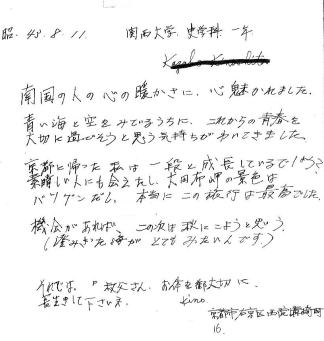 昭. 43. 8. 11 関西大学. 史学科 一年
南国の人の心の暖かさに、心魅かれました。
青い海と空をみているうちに、これからの青春を
大切に過ごそうと思う気持ちがわいてきました。
京都に帰った私は一段と成長しているでしょう?
素晴しい人にも会えたし、大田布岬の景色は
バツグンだし、本当にこの旅行は最高でした。
機会があれば、この次は秋にこようと思う。
(澄みきった海がとてもみたいんです。)
それでは、叔父さん、お体を御大切に
長生きして下さいネ。 Kino.
京都市右京区西院
16.